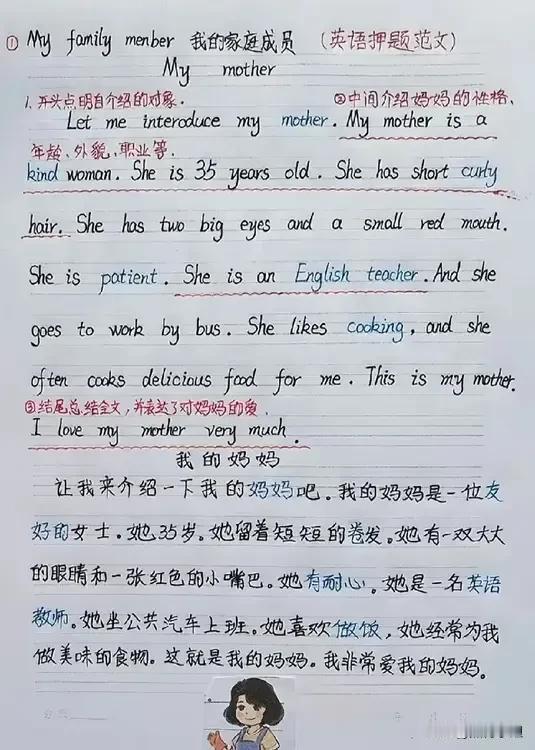 ① My family menber 我的家庭成员 (英语押题范文)
My mother
1. 开头点明自介绍的对象. ②中间介绍妈妈的性格、
Let me interoduce my mother. My mother is a
年龄、外貌、职业等.
kind woman. She is 35 years old. She has short curly
hair. She has two big eyes and a small red mouth.
She is patient. She is an English teacher. And she
goes to work by bus. She likes cooking, and she
often cooks delicious food for me. This is my mother.
③结尾总结全文,并表达了对妈妈的爱.
I love my mother very much.
我的妈妈
让我来介绍一下我的妈妈吧。我的妈妈是一位友
好的女士。她35岁。她留着短短的卷发。她有一双大大
的眼睛和一张红色的小嘴巴。她有耐心。她是一名英语
教师。她坐公共汽车上班。她喜欢做饭,她经常为我
做美味的食物。这就是我的妈妈。我非常爱我的妈妈。